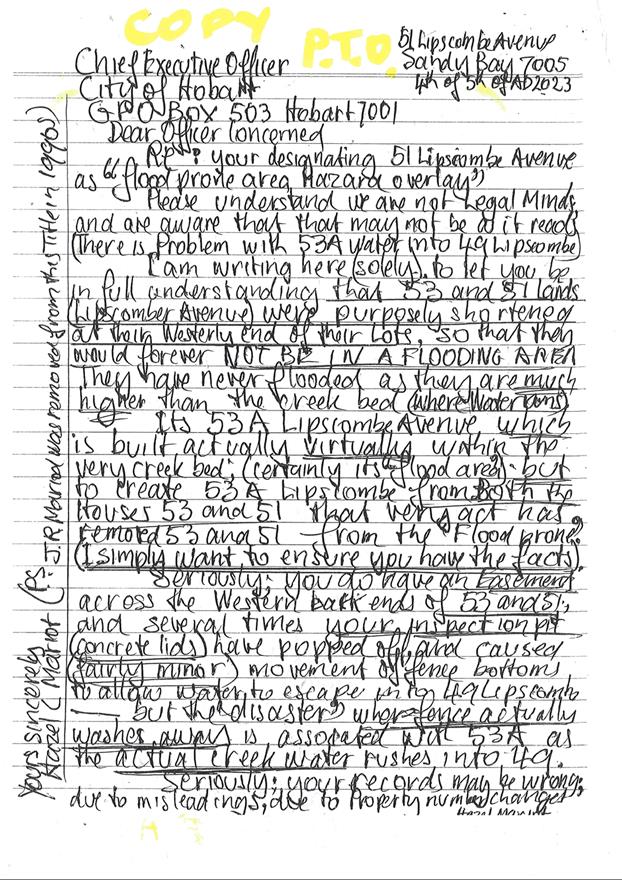 COPY
P.T.O.
51 Lipscombe Avenue
Sandy Bay 7005
4th of 5th of AD2023
Chief Executive Officer
City of Hobart
GPO Box 503 Hobart 7001
Dear Officer Concerned
your designating 51 Lipscombe Avenue
as "flood prone area Hazard overlay"
Please understand we are not Legal Minds
and are aware that that may not be as it reads
(There is Problem with 53A water into 49 Lipscombe)
I am writing here (solely) to let you be
in full understanding that 53 and 51 lands
(Lipscombe Avenue) were purposely shortened
at their Westerly end of their Lots, so that they
would forever NOT BE IN A FLOODING AREA
They have never flooded as they are much
higher than the creek bed (where Water runs)
Its 53A Lipscombe Avenue which
is built actually virtually within the
very creek bed; (certainly its "flood area) but
to create 53A Lipscombe from Both the
Houses 53 and 51 that very act has
removed 53 and 51 from the "Flood prone"
(I simply want to ensure you have the facts).
Seriously; you do have an Easement
across the Western back ends of 53 and 51,
and several times your inspection pit
(concrete lids) have popped off, and caused
(fairly minor) movement of fence bottoms
to allow water to escape into 49 Lipscombe
— but the "disaster" when fence actually
washes away is associated with 53A as
the actual creek water rushes into 49.
Seriously; your records may be wrong;
due to misleadings; due to Property number changes
Hazel Marriot
Yours Sincerely
Hazel C Marriot (PS: J.R Marriot was removed from this Title in 1990s)